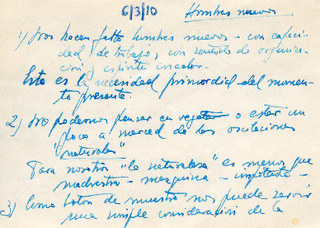 6/3/10 Hombres nuevos
1) Nos hacen falta hombres nuevos - con capaci-
dad de trabajo, con sentido de organiza-
ción y espíritu creador.
Esta es la necesidad primordial del momen-
to presente.
2) No podemos pensar en vegetar o estar un
poco a merced de las oscilaciones
"naturales"
Para nosotros "la naturaleza" es menos que
madrastra - mezquina -
3) Como botón de muestra nos puede servir
una simple consideración de la